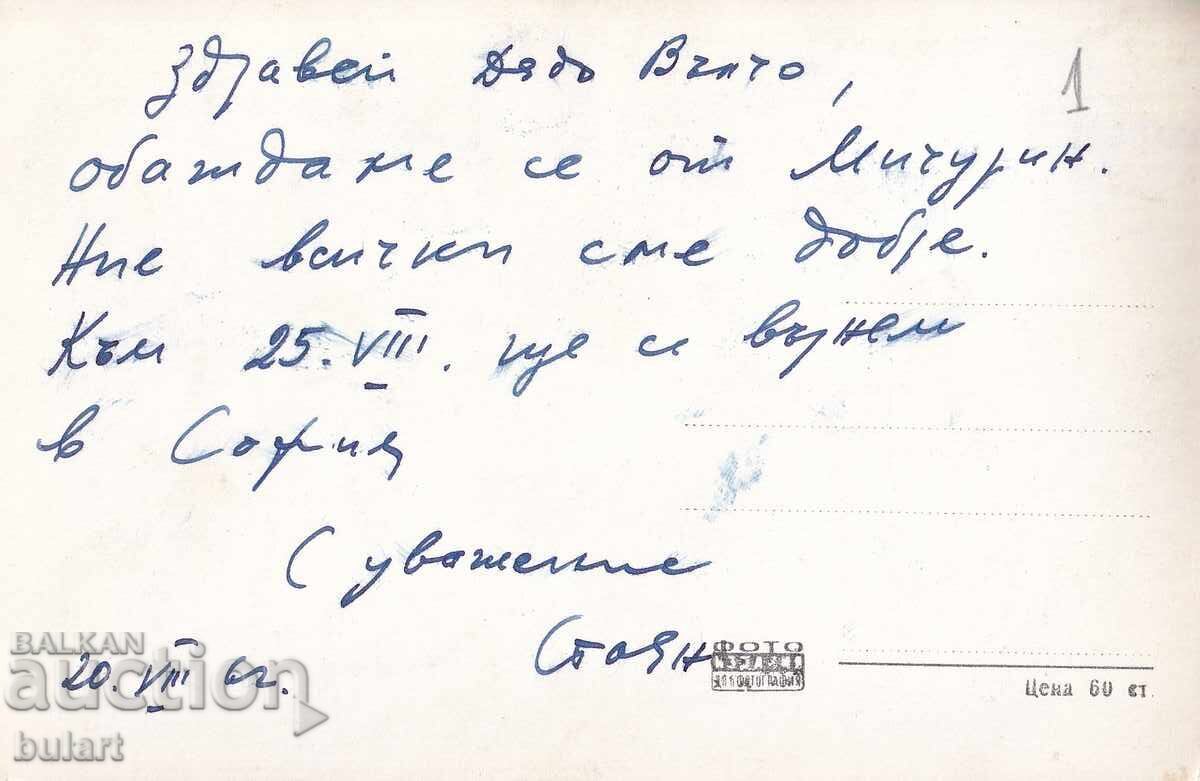 Здравей Дядо Вълчо,
1
обаждаме се от Мичурин.
Ние всички сме добре.
Към 25.VIII. ще се върнем
в София
С уважение
Стоян
20.VIII
ФОТО
Цена 60 ст.
BALKAN
auction
bulart